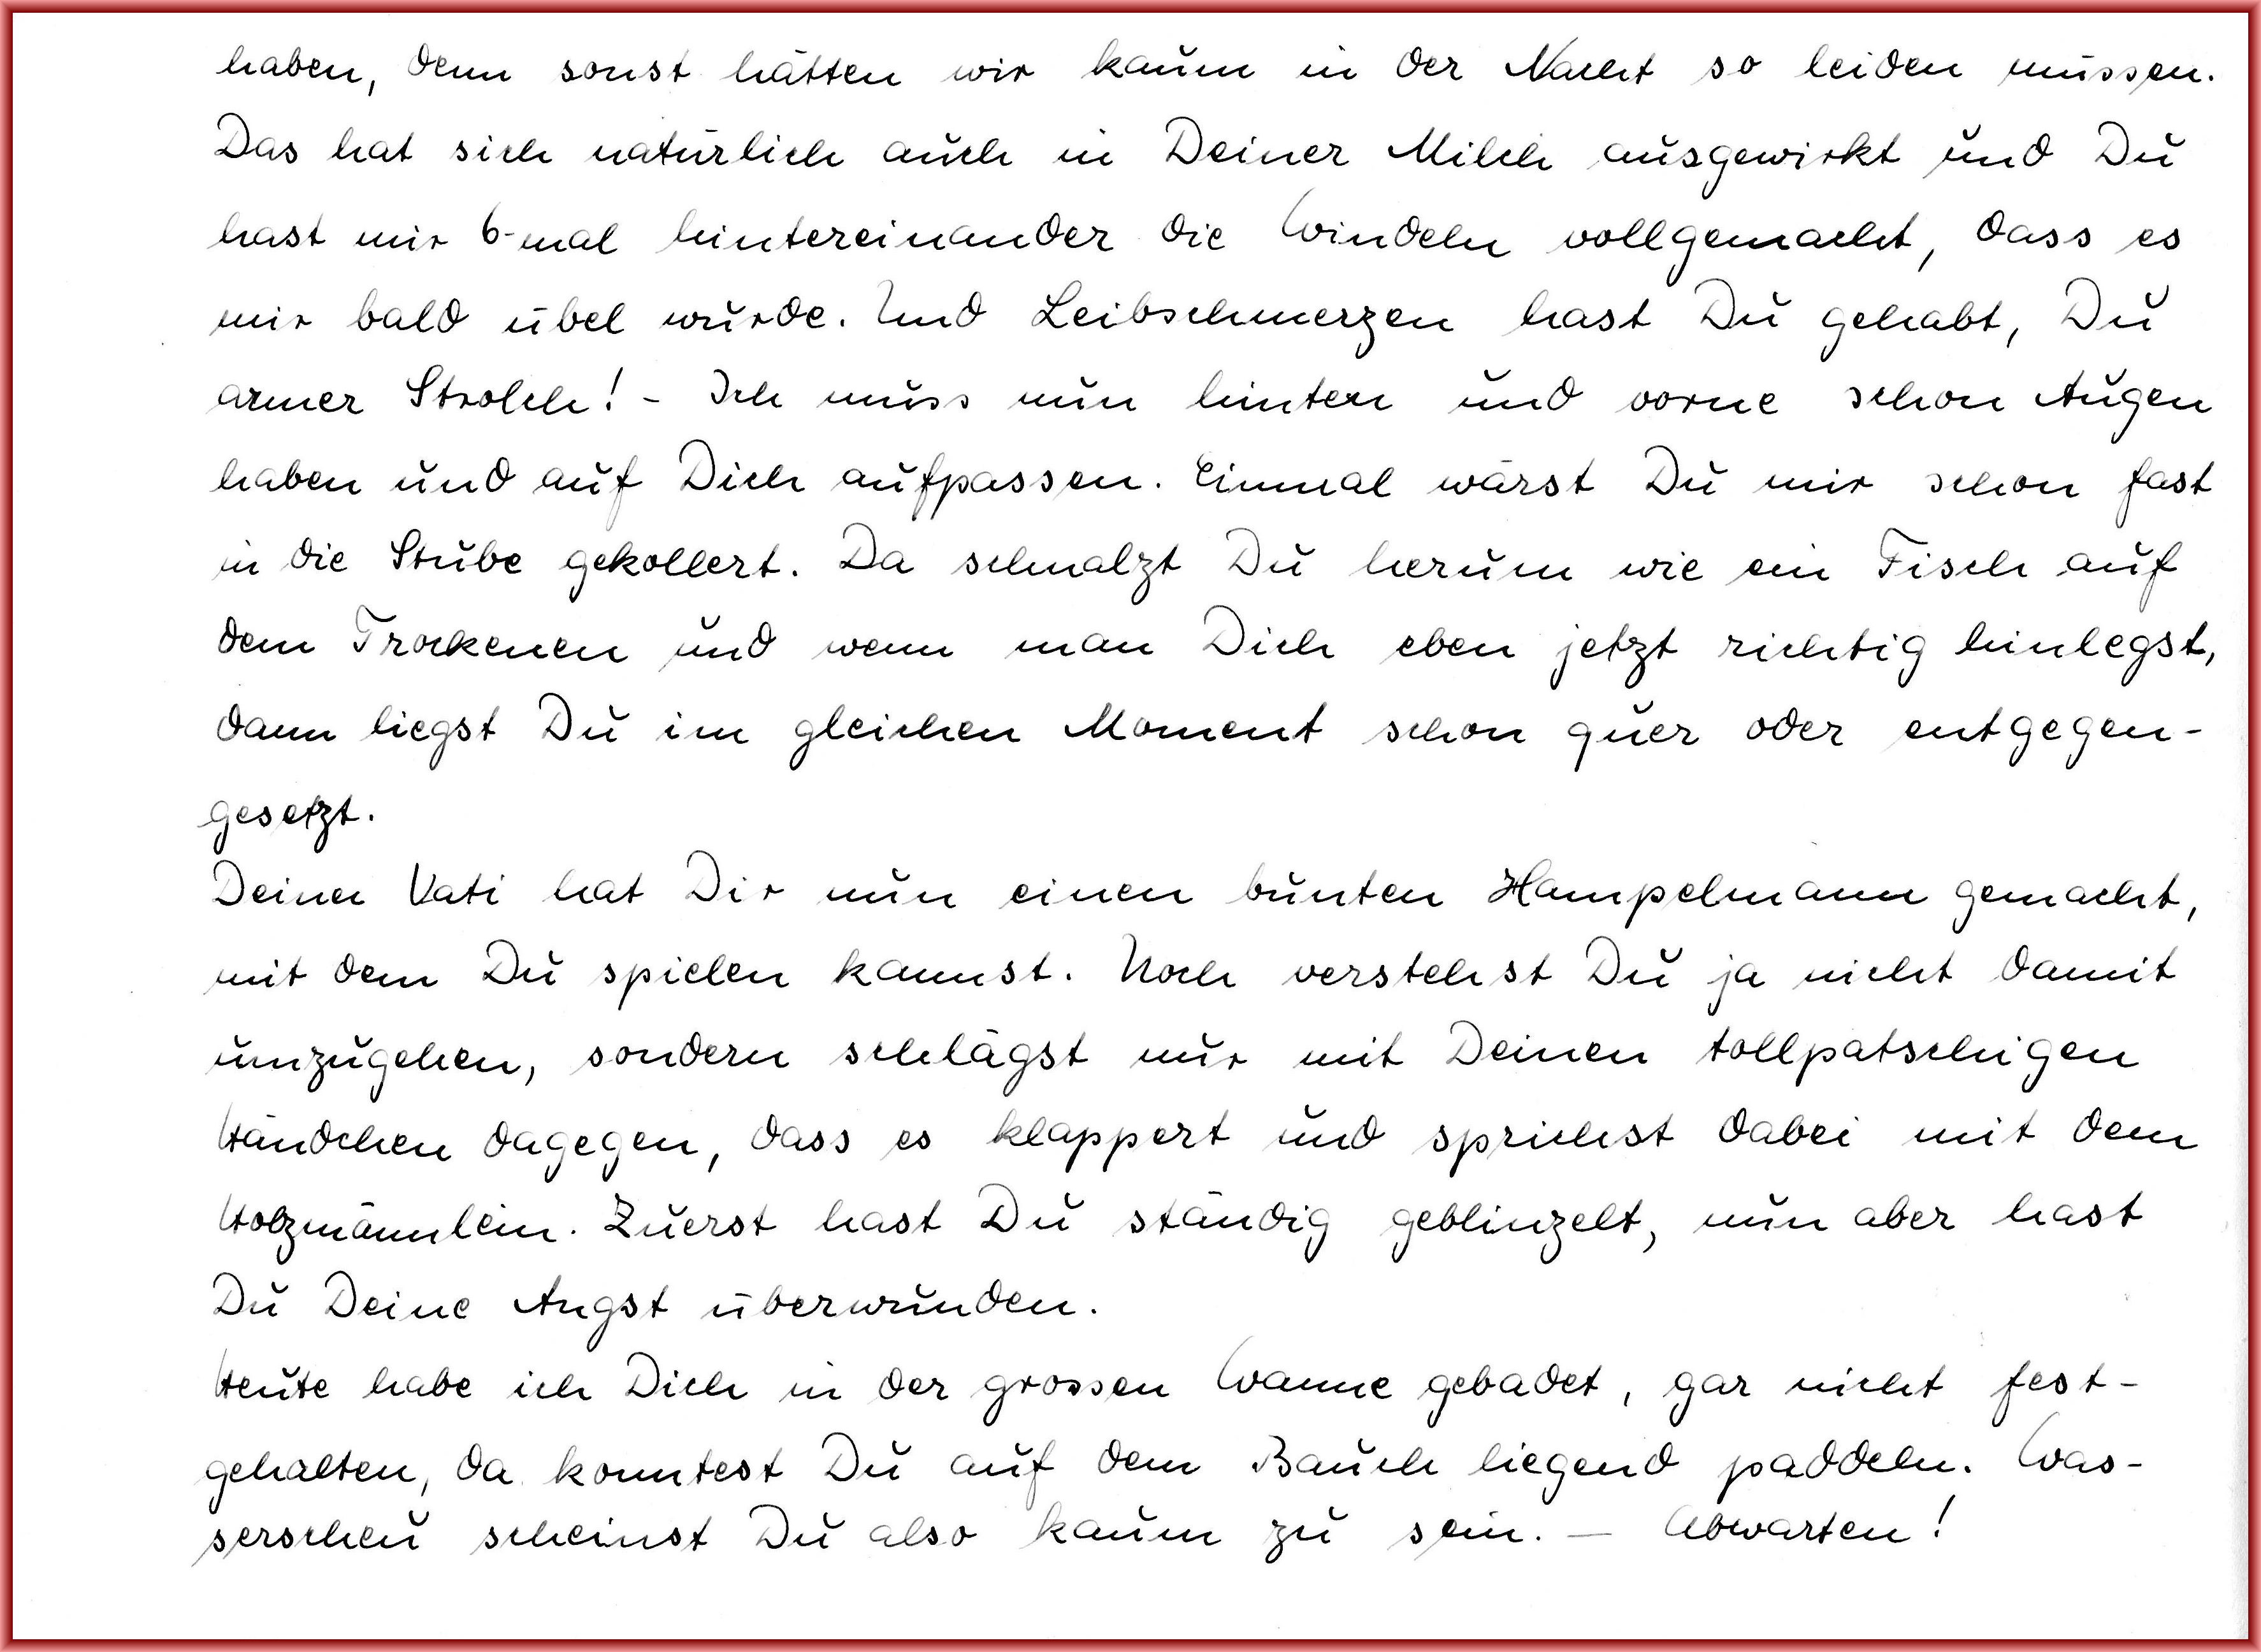 haben, denn sonst hätten wir kaum in der Nacht so leiden müssen.
Das hat sich natürlich auch in Deiner Milch ausgewirkt und Du
hast mir 6-mal hintereinander die Windeln vollgemacht, dass es
mir bald übel wurde. Und Leibschmerzen hast Du gehabt, Du
armer Strolch! - Ich muss nun hinten und vorne schon Augen
haben und auf Dich aufpassen. Einmal wärst Du mir schon fast
in die Stube gekollert. Da schnalzt Du herum wie ein Fisch auf
dem Trockenen und wenn man Dich eben jetzt richtig hinlegst,
dann liegst Du im gleichen Moment schon quer oder entgegen-
gesetzt.
Deiner Vati hat Dir nun einen bunten Hampelmann gemacht,
mit dem Du spielen kannst. Noch verstehst Du ja nicht damit
umzugehen, sondern schlägst nur mit Deinen tollpatschigen
Händchen dagegen, dass es klappert und sprichst dabei mit dem
Holzmännlein. Zuerst hast Du ständig geblinzelt, nun aber hast
Du Deine Angst überwunden.
Heute habe ich Dich in der grossen Wanne gebadet, gar nicht fest-
gehalten, da konntest Du auf dem Bauch liegend paddeln. Was-
serscheu scheinst Du also kaum zu sein. — Abwarten!